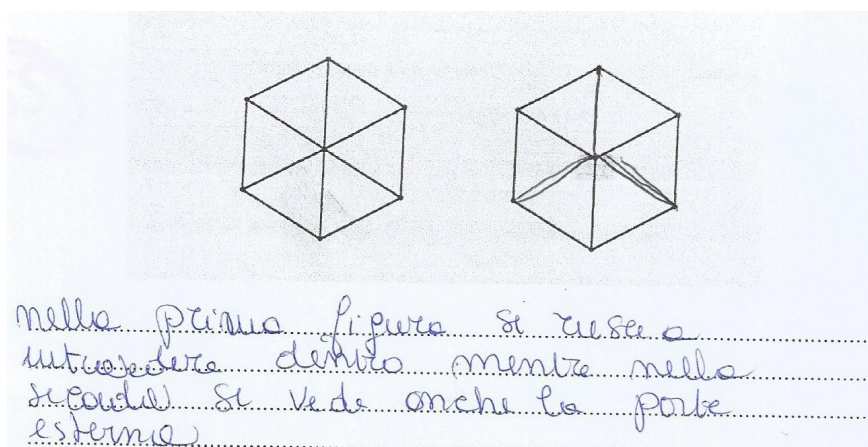 nella prima figura si riesce a
intravedere dentro mentre nella
seconda si vede anche la parte
esterna